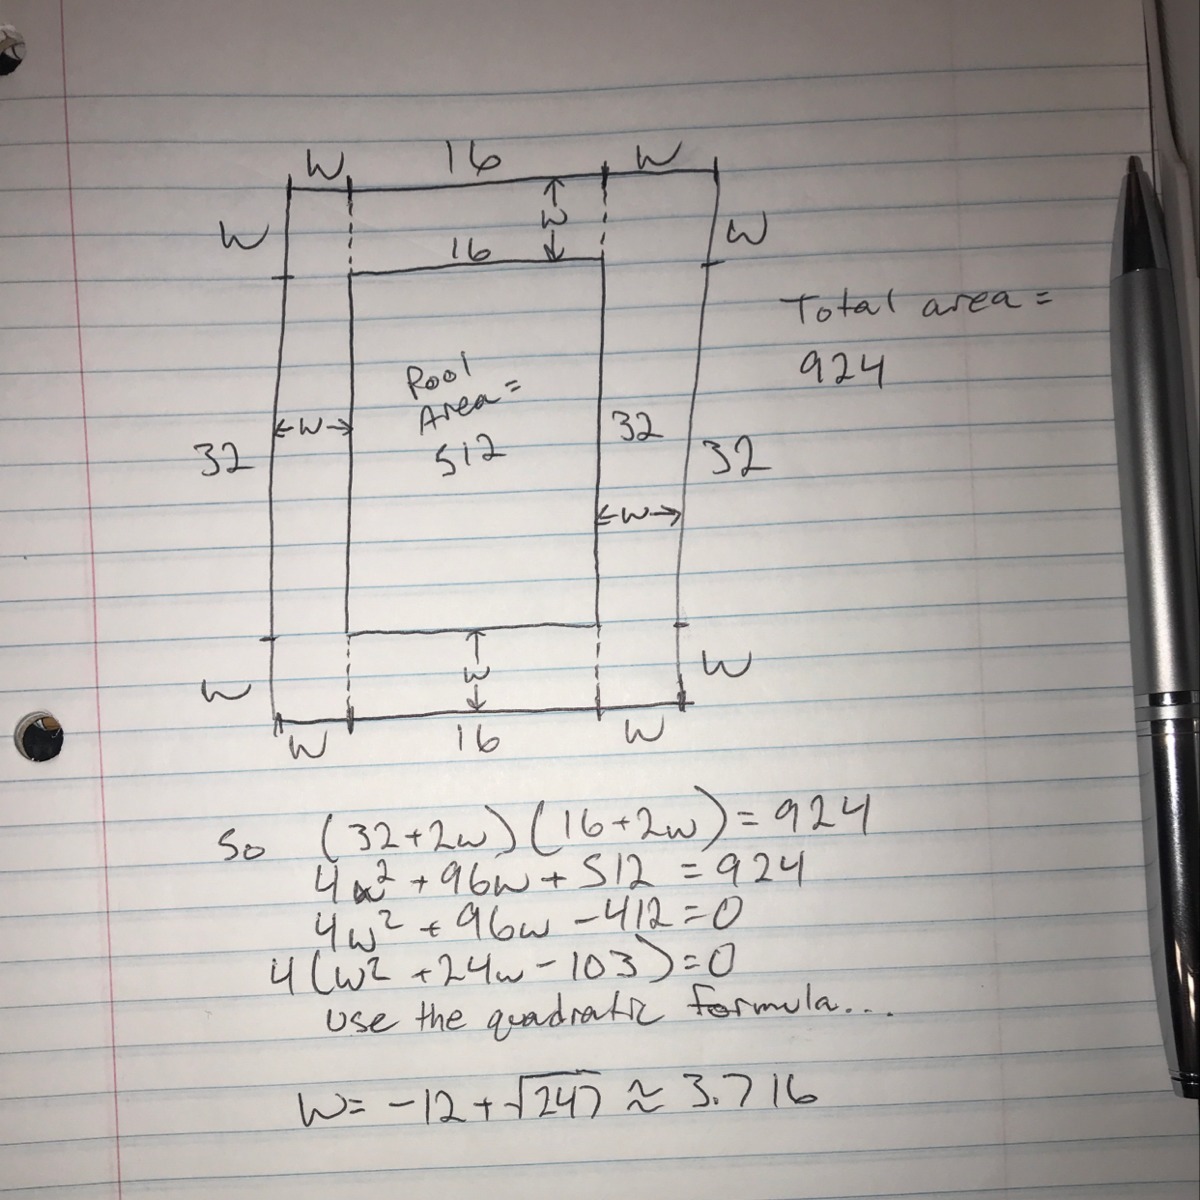 W 16 W
W W
W
16
Total area =
924
Pool
Area =
512
←W→
32
32
32
←W→
W
W
W
W 16 W
So (32+2w)(16+2w)=924
4w² +96w+512 =924
4w² +96w -412=0
4(w² +24w-103)=0
Use the quadratic formula...
W= -12+√247 ≈ 3.716